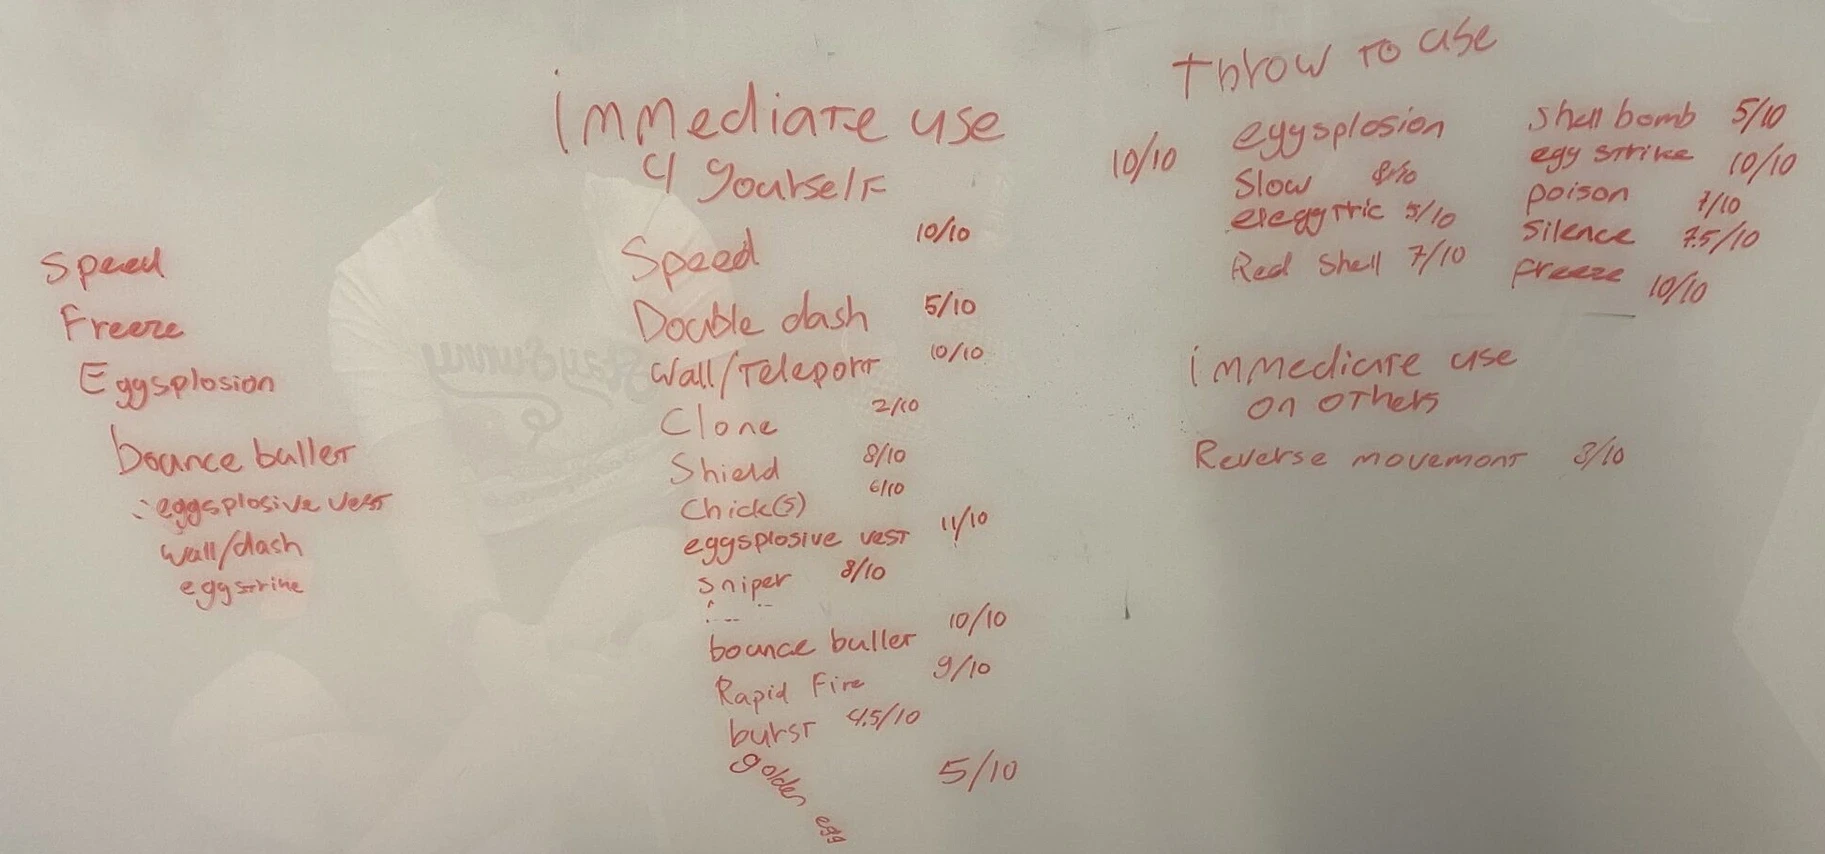 Speed
Freeze
Eggsplosion
bounce buller
eggsplosive vest
wall/dash
eggstrike
immediate use
4 yourself
Speed 10/10
Double dash 5/10
Wall/Teleport 10/10
Clone 2/10
Shield 8/10
Chick(s) 6/10
eggsplosive vest 11/10
Sniper 8/10
bounce buller 10/10
Rapid Fire 9/10
burst 4.5/10
golden egg 5/10
Throw to use
10/10 eggsplosion
Slow
eleggtric 5/10
Red Shell 7/10
Shell bomb 5/10
egg strike 10/10
poison 7/10
Silence 7.5/10
Freeze 10/10
immediate use
on others
Reverse movement 3/10